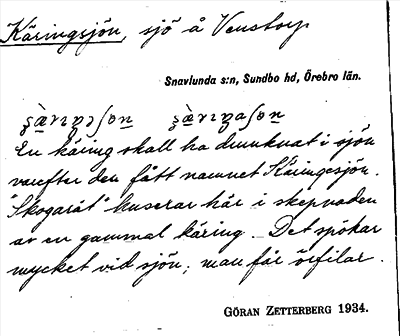 Käringsjön, sjö å Venstorp
Snavlunda s:n, Sundbo hd, Örebro län.
En käring skall ha drunknat i sjön
varefter den fått namnet Käringsjön.
"Skogaråt" huserar här i skepnaden
av en gammal käring. Det spökar
mycket vid sjön; man får örfilar.
GÖRAN ZETTERBERG 1934.